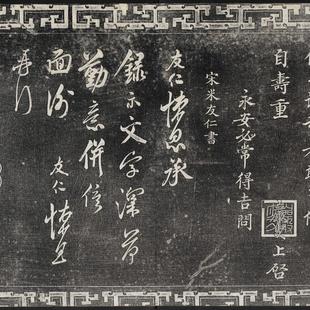 自壽重 上啓
永安必常得吉問
宋米友仁書
友仁悚息承
録示文字深荷
勤意併俟
面謝 友仁悚息